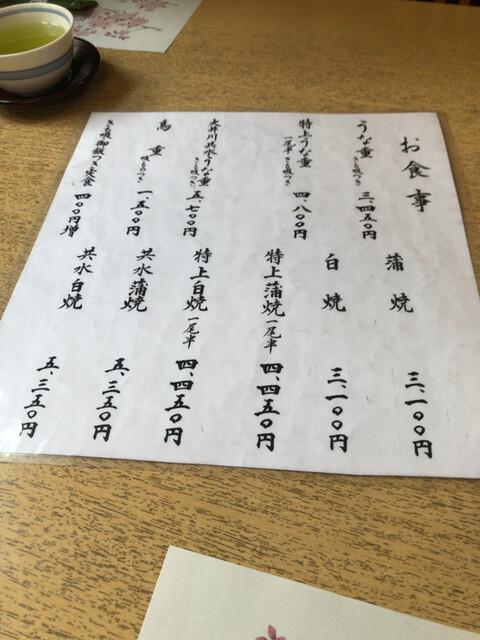 お食事
うな重 きも吸つき 三、四五〇円
特上うな重 一尾半 きも吸つき 四、八〇〇円
大井川共水うな重 きも吸つき 五、七〇〇円
鳥重 吸もの付 一、五〇〇円
きも吸御飯つき定食 四〇〇円増
蒲焼 三、一〇〇円
白焼 三、一〇〇円
特上蒲焼 一尾半 四、四五〇円
特上白焼 一尾半 四、四五〇円
共水蒲焼 五、三五〇円
共水白焼 五、三五〇円